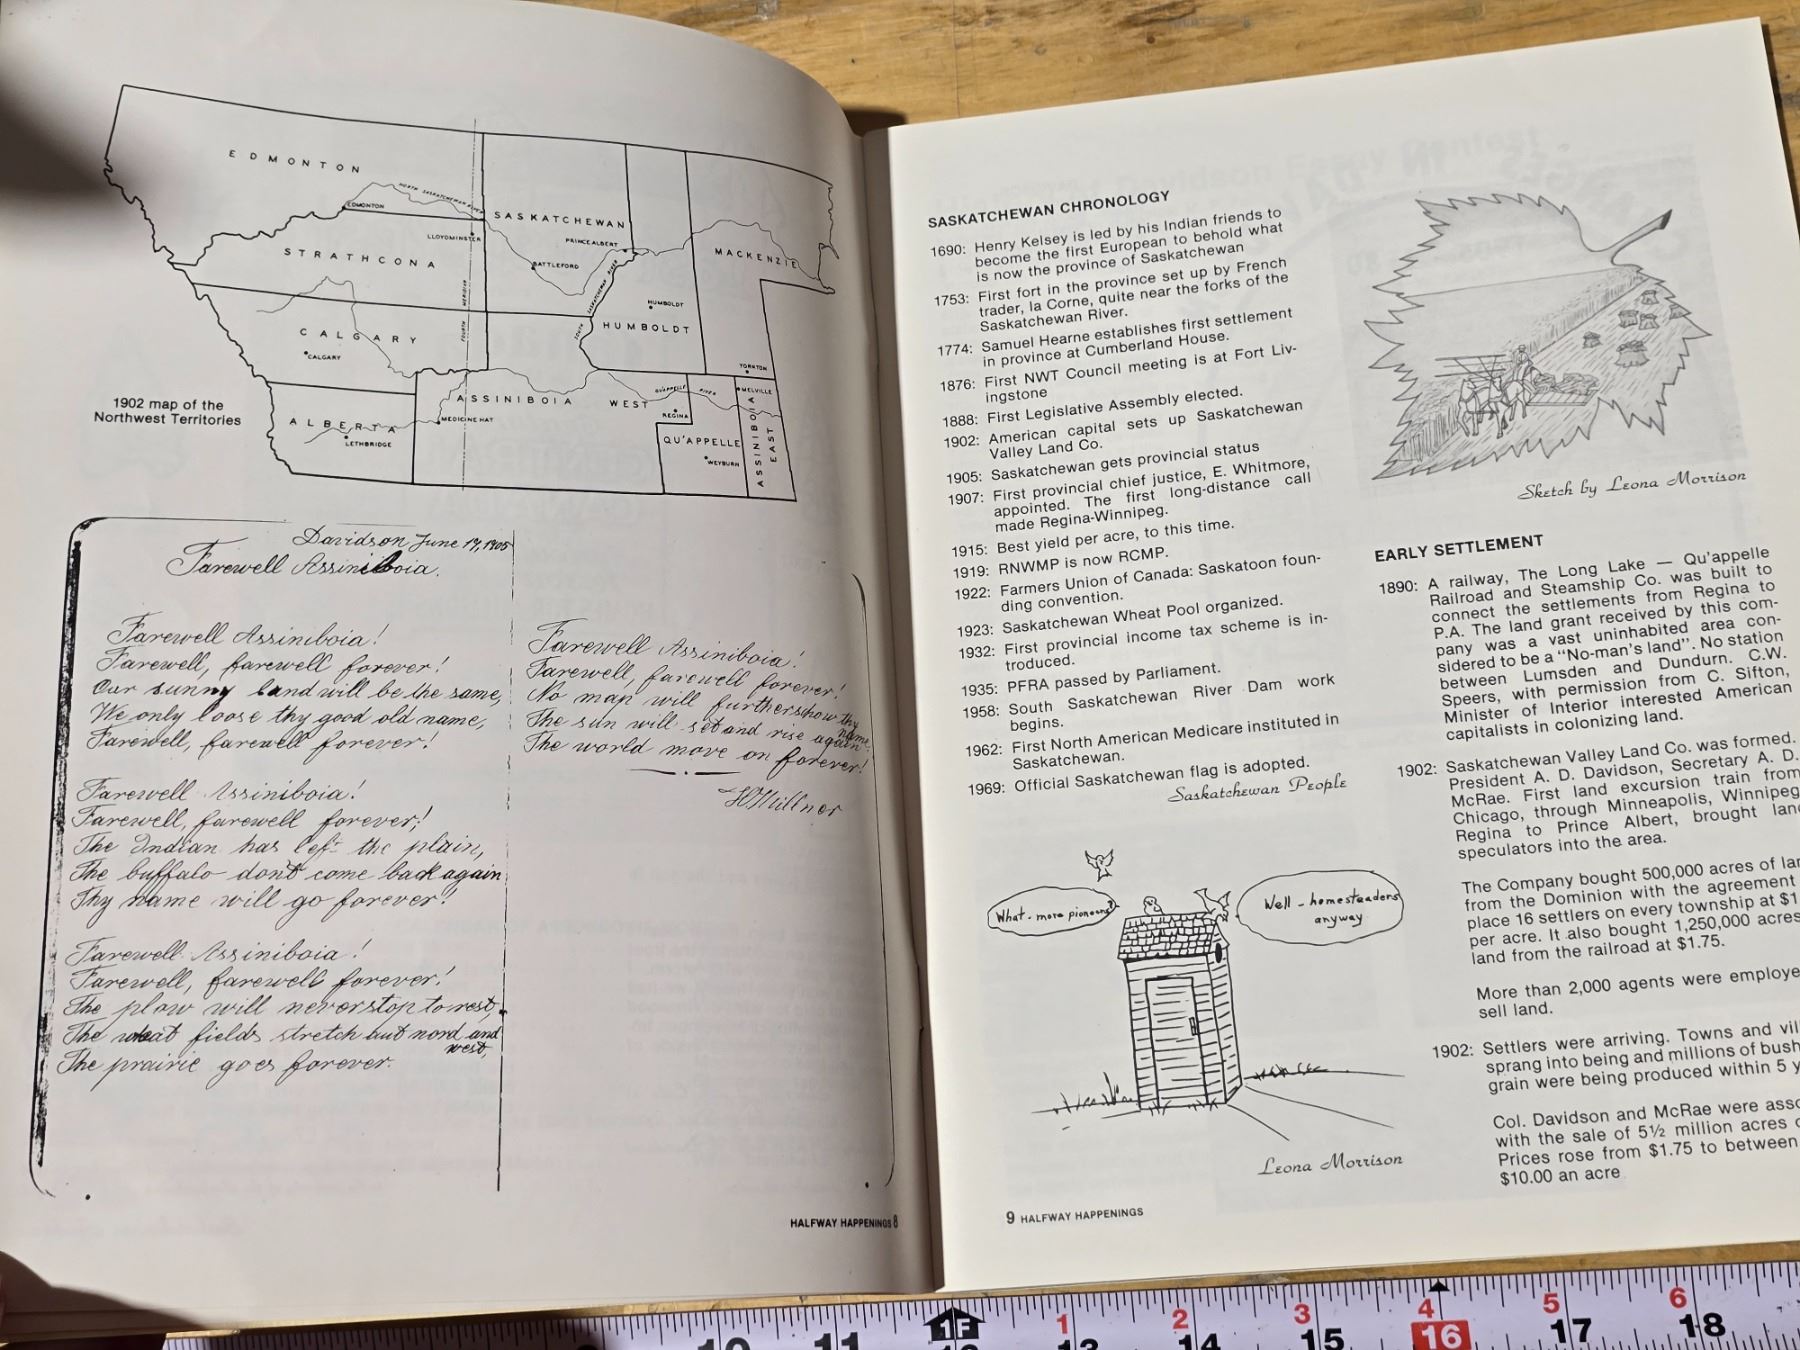 EDMONTON
NORTH SASKATCHEWAN RIVER
EDMONTON
LLOYDMINSTER
SASKATCHEWAN
PRINCE ALBERT
BATTLEFORD
MACKENZIE
STRATHCONA
FOURTH MERIDIAN
SOUTH SASKATCHEWAN RIVER
HUMBOLDT
HUMBOLDT
CALGARY
CALGARY
YORKTON
MELVILLE
ASSINIBOIA WEST
QU'APPELLE RIVER
REGINA
ALBERTA
MEDICINE HAT
LETHBRIDGE
QU'APPELLE
WEYBURN
ASSINIBOIA
EAST
1902 map of the
Northwest Territories
Davidson June 17, 1905
Farewell Assiniboia.
Farewell Assiniboia!
Farewell, farewell forever!
Our sunny land will be the same,
We only loose thy good old name,
Farewell, farewell forever!
Farewell Assiniboia!
Farewell, farewell forever!
The Indian has left the plain,
The buffalo dont come back again
Thy name will go forever!
Farewell Assiniboia!
Farewell, farewell forever!
The plow will never stop to rest,
The wheat fields stretch but nord and
west,
The prairie goes forever.
Farewell Assiniboia!
Farewell, farewell forever!
No map will further show thy
name.
The sun will set and rise again
The world move on forever!
Millner
HALFWAY HAPPENINGS 8
SASKATCHEWAN CHRONOLOGY
1690: Henry Kelsey is led by his Indian friends to
become the first European to behold what
is now the province of Saskatchewan
1753: First fort in the province set up by French
trader, la Corne, quite near the forks of the
Saskatchewan River.
1774: Samuel Hearne establishes first settlement
in province at Cumberland House.
1876: First NWT Council meeting is at Fort Liv-
ingstone
1888: First Legislative Assembly elected.
1902: American capital sets up Saskatchewan
Valley Land Co.
1905: Saskatchewan gets provincial status
1907: First provincial chief justice, E. Whitmore,
appointed. The first long-distance call
made Regina-Winnipeg.
1915: Best yield per acre, to this time.
1919: RNWMP is now RCMP.
1922: Farmers Union of Canada: Saskatoon foun-
ding convention.
1923: Saskatchewan Wheat Pool organized.
1932: First provincial income tax scheme is in-
troduced.
1935: PFRA passed by Parliament.
1958: South Saskatchewan River Dam work
begins.
1962: First North American Medicare instituted in
Saskatchewan.
1969: Official Saskatchewan flag is adopted.
Saskatchewan People
What - more pioneers?
Well - homesteaders
anyway
Leona Morrison
9 HALFWAY HAPPENINGS
Sketch by Leona Morrison
EARLY SETTLEMENT
1890: A railway, The Long Lake — Qu'appelle
Railroad and Steamship Co. was built to
connect the settlements from Regina to
P.A. The land grant received by this com-
pany was a vast uninhabited area con-
sidered to be a "No-man's land". No station
between Lumsden and Dundurn. C.W.
Speers, with permission from C. Sifton,
Minister of Interior interested American
capitalists in colonizing land.
1902: Saskatchewan Valley Land Co. was formed.
President A. D. Davidson, Secretary A. D.
McRae. First land excursion train from
Chicago, through Minneapolis, Winnipeg
Regina to Prince Albert, brought land
speculators into the area.
The Company bought 500,000 acres of
from the Dominion with the agreement
place 16 settlers on every township at $1
per acre. It also bought 1,250,000 acres
land from the railroad at $1.75.
More than 2,000 agents were
sell land.
1902: Settlers were arriving. Towns and
sprang into being and millions of
grain were being produced within 5
Col. Davidson and McRae were
with the sale of 5½ million acres
Prices rose from $1.75 to between
$10.00 an acre
1 2 3 4 5 6
10 11 12 13 14 15 16 17 18
1F